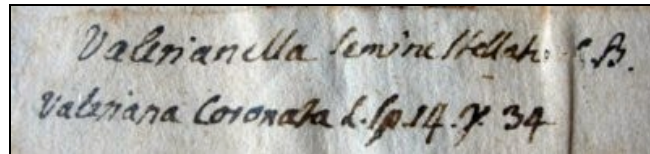 Valerianella semine stellato C.B.
Valeriana Coronata L. sp. 14. γ. 34